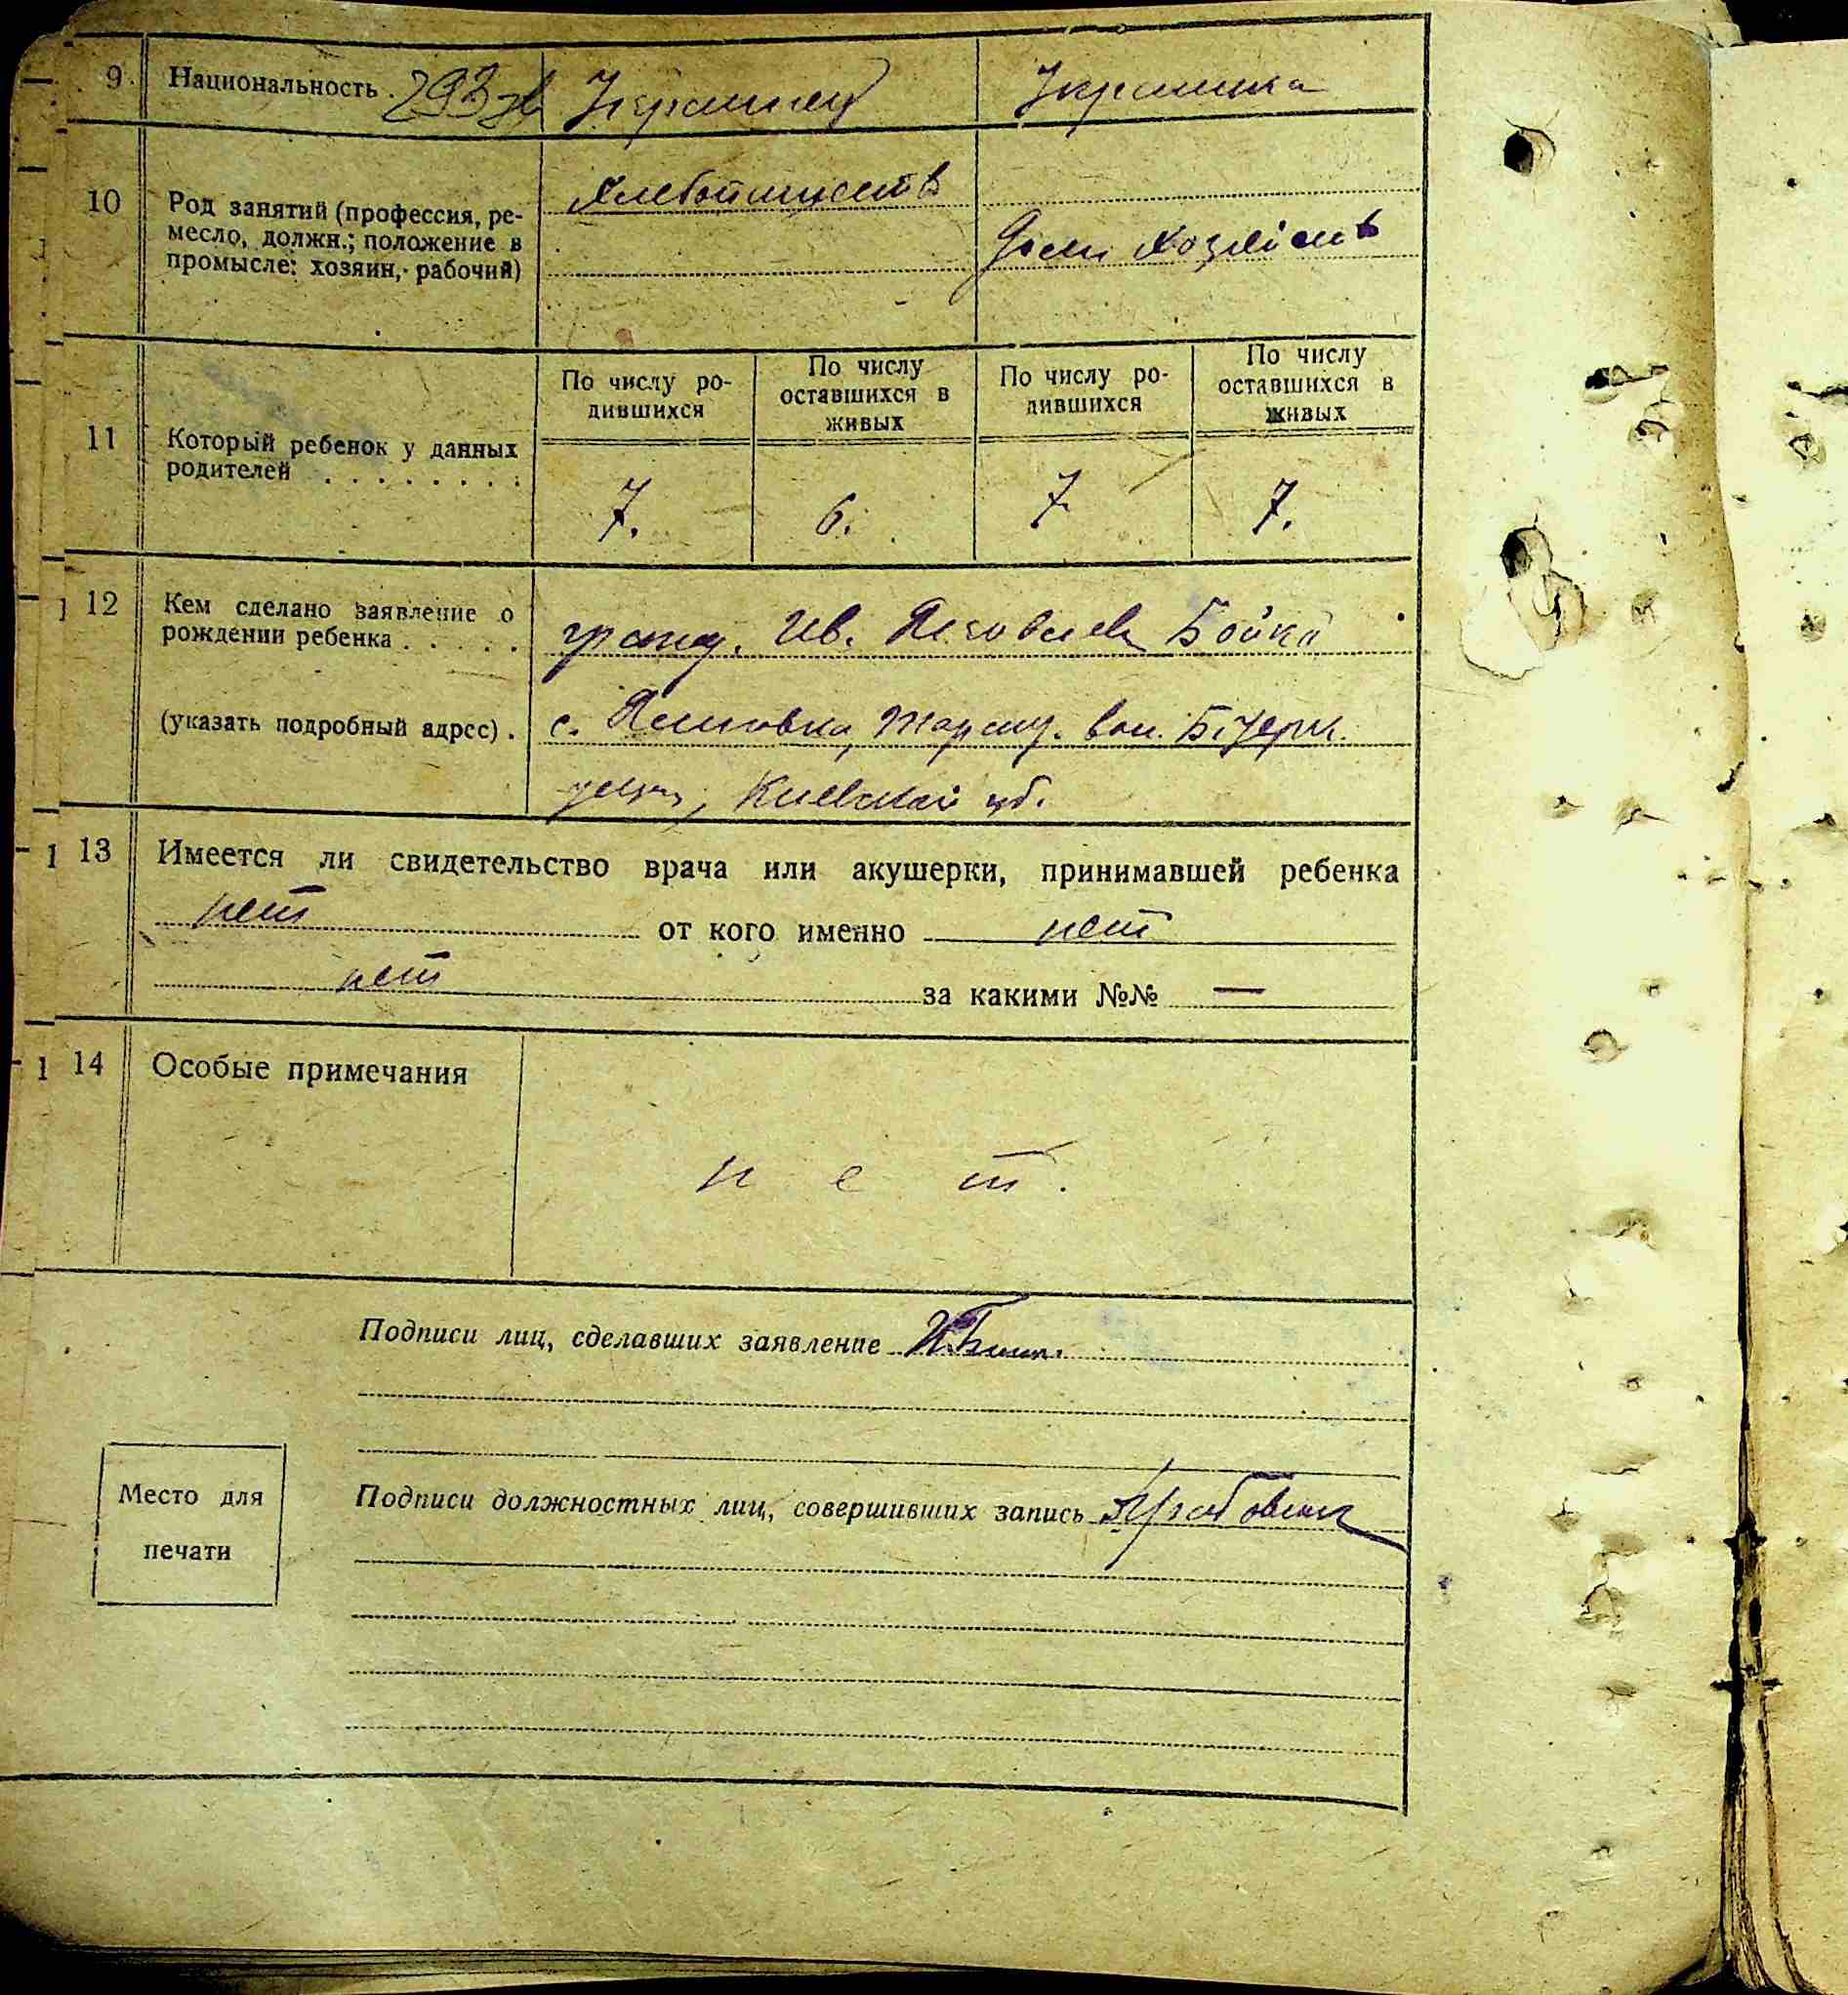 9 Национальность 293 Украинец Украинка
10 Род занятий (профессия, ре-
месло, должн.; положение в
промысле: хозяин, рабочий)
Хлебопашеств
Дом. Хозяйств
По числу ро-
дившихся
По числу
оставшихся в
живых
По числу ро-
дившихся
По числу
оставшихся в
живых
11 Который ребенок у данных
родителей . . . . . . . .
7. 6. 7 7.
12 Кем сделано заявление о
рождении ребенка . . . . .
гражд. Ив. Яковлев Бойко
(указать подробный адрес) . с. вол. Б. Церк.
уезда, Киевской губ.
1 13 Имеется ли свидетельство врача или акушерки, принимавшей ребенка
нет от кого именно нет
нет за какими №№ —
1 14 Особые примечания
нет.
Подписи лиц, сделавших заявление
Подписи должностных лиц, совершивших запись
Место для
печати